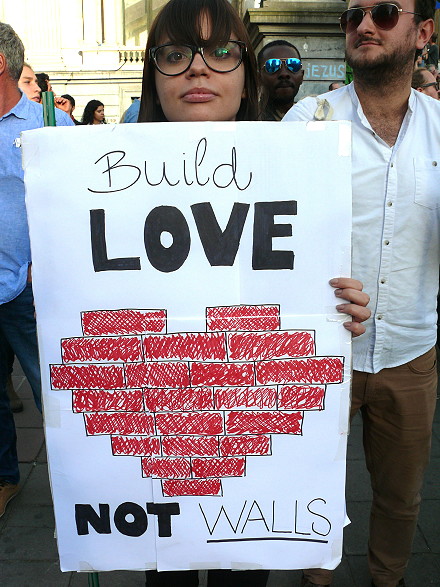 Build
LOVE
NOT WALLS